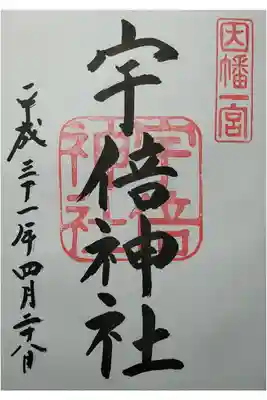 因幡一宮
宇倍神社
宇倍神社
平成三十一年四月二十八日